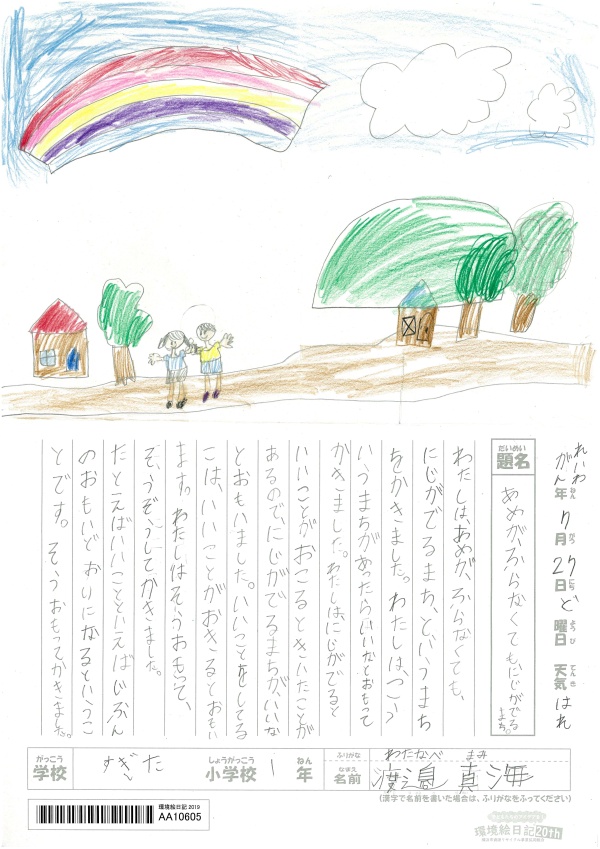 れいわ
がん年ねん7月がつ27日にちど曜日ようび天気てんきはれ
題名だいめい
あめが、ふらなくてもにじがでる
まち。
わたしは、あめが、ふらなくても、
にじがでるまち、というまち
をかきました。わたしは、こう
いうまちがあったらいいなとおもって
かきました。わたしは、にじがでると
いいことがおこるときいたことが
あるので、にじがでるまちが、いいな
とおもいました。いいことをしてる
こは、いいことがおきるとおもい
ます。わたしはそうおもって、
そうぞうしてかきました。
たとえばいいことといえばじぶん
のおもいどおりになるというこ
とです。そうおもってかきました。
がっこう
学校
すぎた
しょうがっこう
小学校
1
ねん
年
ふりがな
わたなべ まみ
なまえ
名前
渡邉 真海
(漢字で名前を書いた場合は、ふりがなをふってください)
環境絵日記 2019
AA10605
環境絵日記20th